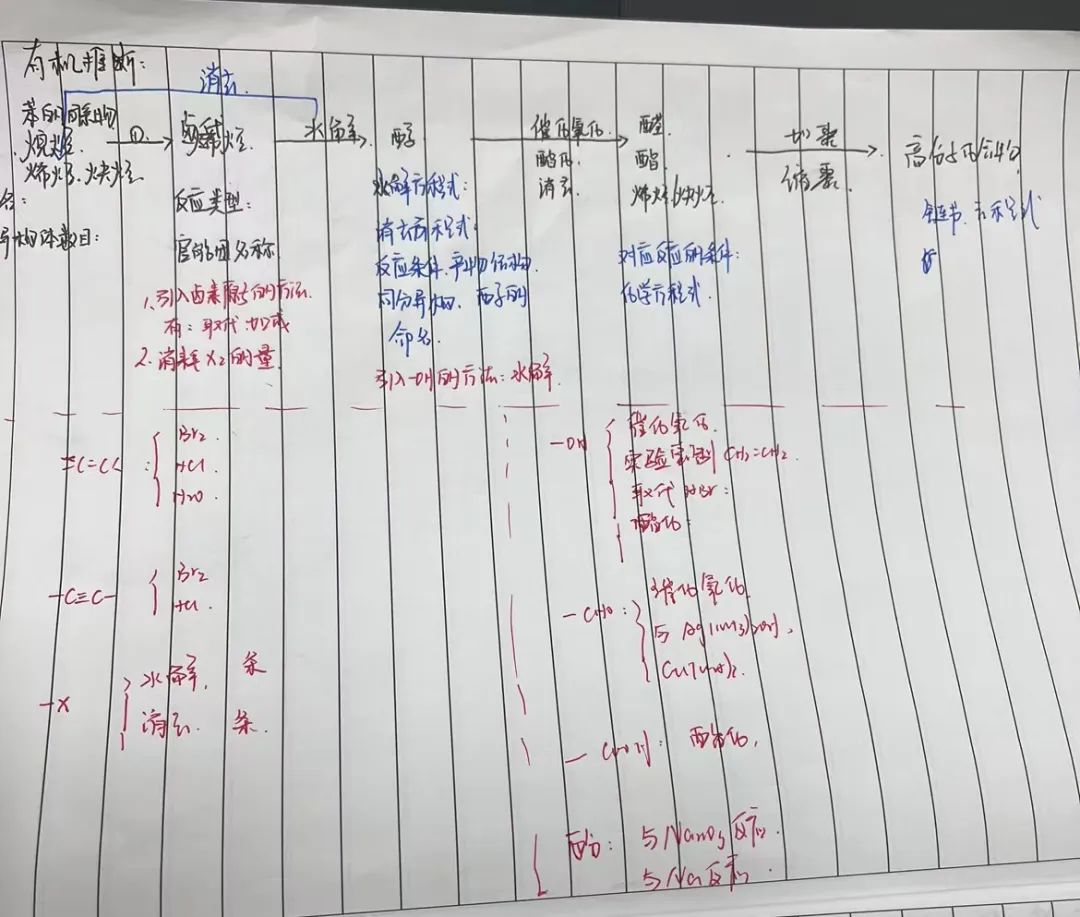 有机推断:
消去
苯的同系物
烷烃
烯烃、炔烃
① 卤代烃
水解 醇
催化氧化 醛
酯化 酯
消去 烯烃/炔烃
加聚
缩聚
高分子化合物
名:
异构体数目:
反应类型:
官能团名称
1、引入卤素原子的方法
有:取代、加成
2、消耗X₂的量
水解方程式:
消去方程式:
反应条件、产物结构
同分异构、
命名.
引入-OH的方法:水解.
对应反应的条件:
化学方程式.
链节、方程式
C=C
Br₂
HCl
H₂O
-C≡C-
Br₂
HCl
-X
水解, 条
消去. 条
-OH
催化氧化.
实验室制CH₂=CH₂
取代HBr:
酯化:
-CHO:
催化氧化
与Ag(NH₃)₂OH,
Cu(OH)₂.
-COOH: 酯化,
酚:
与Na反应